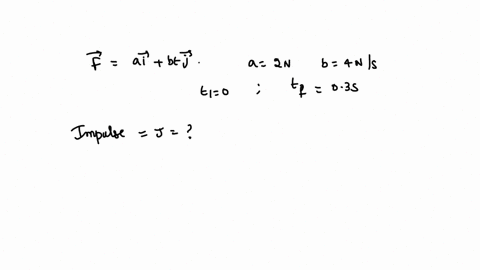 F⃗ = ai⃗ + btj⃗. a = 2N b = 4N/s
t1=0 ; tf = 0.3s
Impulse = J = ?